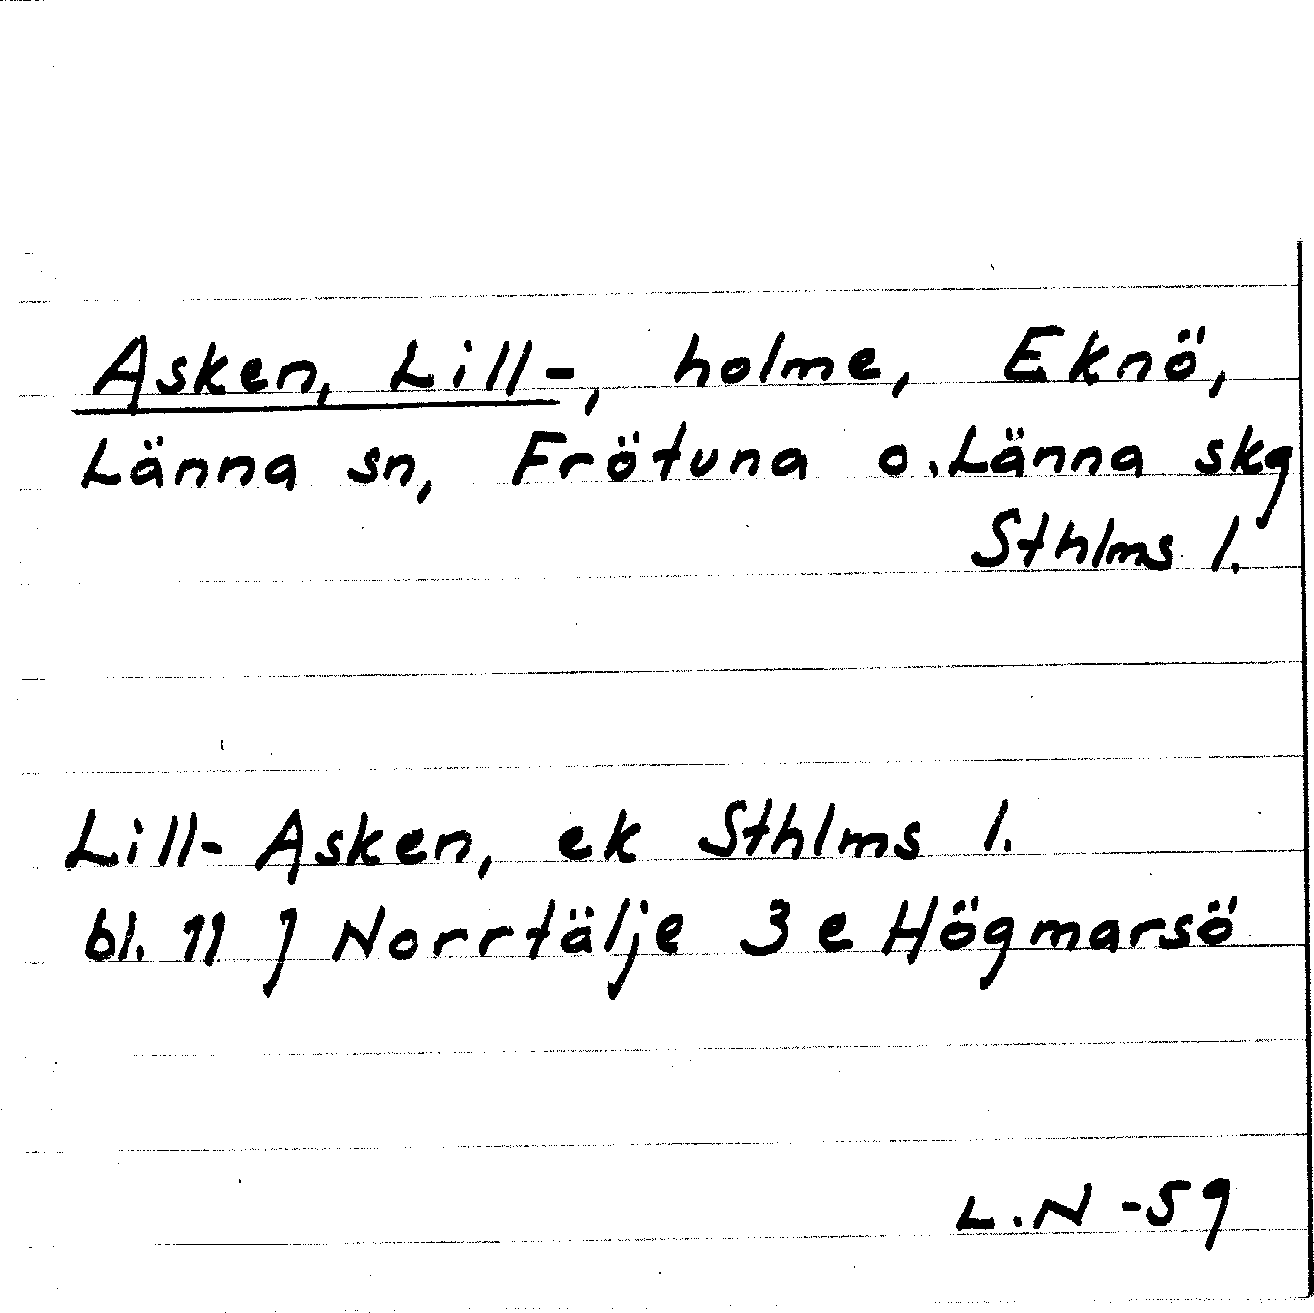 Asken, Lill-, holme, Eknö,
Länna sn, Frötuna o. Länna skg
Sthlms l.
Lill-Asken, ek Sthlms l.
bl. 11 J Norrtälje 3 e Högmarsö
L.N -59